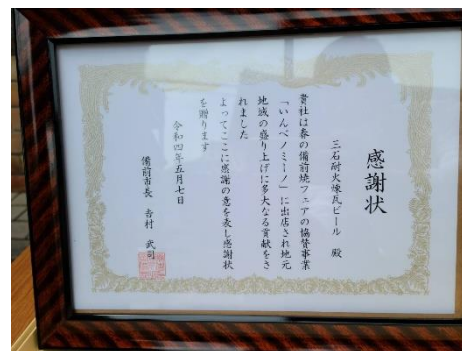 感謝状
三石耐火煉瓦ビール 殿
貴社は春の備前焼フェアの協賛事業
「いんべノミーノ」に出店され地元
地域の盛り上げに多大なる貢献をさ
れました
よってここに感謝の意を表し感謝状
を贈ります
令和四年五月七日
備前市長 吉村 武司